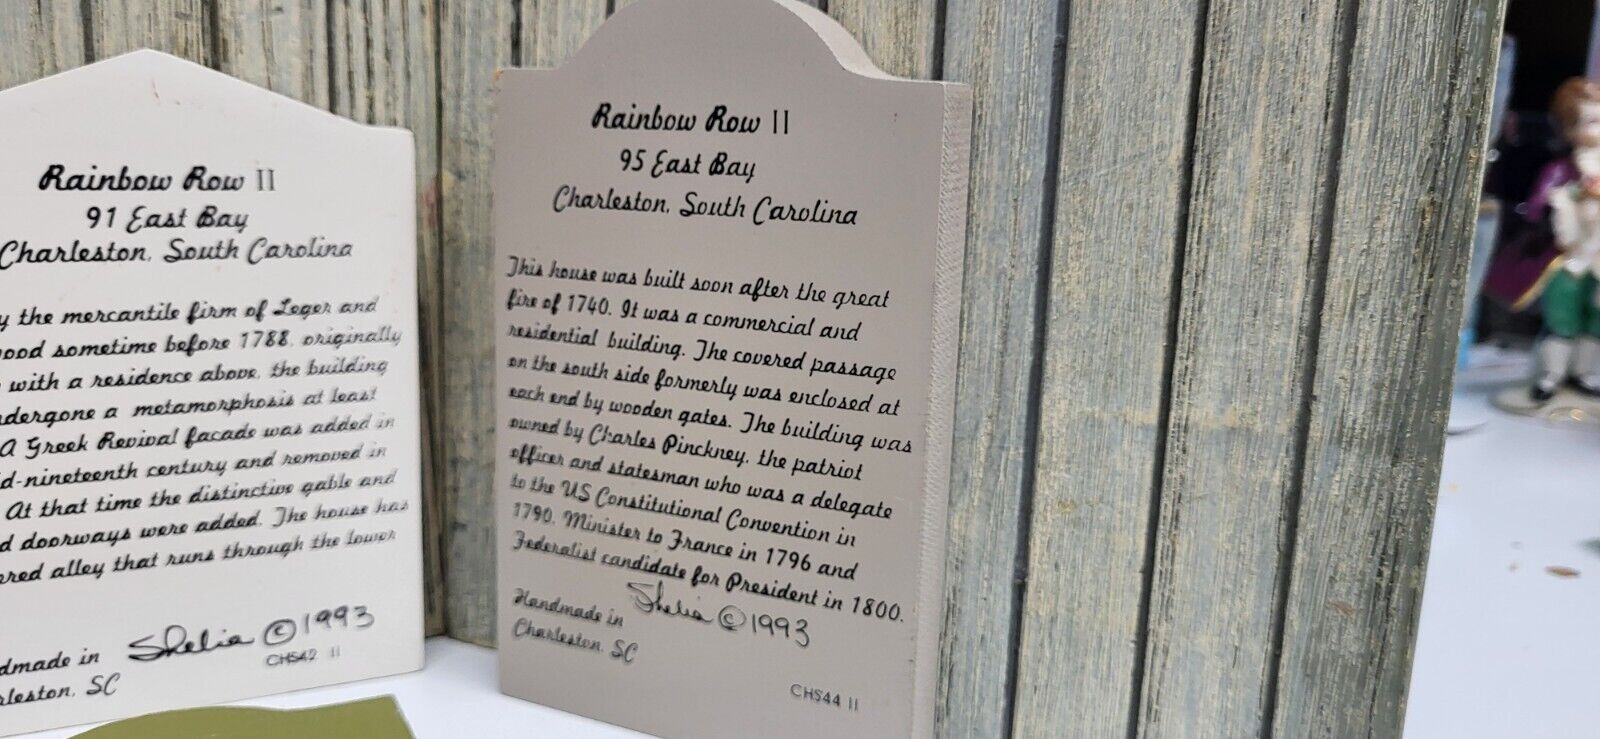 Rainbow Row II
91 East Bay
Charleston, South Carolina
the mercantile firm of Leger and
sometime before 1788, originally
with a residence above, the building
a metamorphosis at least
A Greek Revival facade was added in
nineteenth century and removed in
At that time the distinctive gable and
doorways were added. The house has
alley that runs through the lower
in
SC
Shelia © 1993
CHS42 II
Rainbow Row II
95 East Bay
Charleston, South Carolina
This house was built soon after the great
fire of 1740. It was a commercial and
residential building. The covered passage
on the south side formerly was enclosed at
each end by wooden gates. The building was
owned by Charles Pinckney, the patriot
officer and statesman who was a delegate
to the US Constitutional Convention in
1790, Minister to France in 1796 and
Federalist candidate for President in 1800.
Handmade in
Charleston, SC
Shelia © 1993
CHS44 II